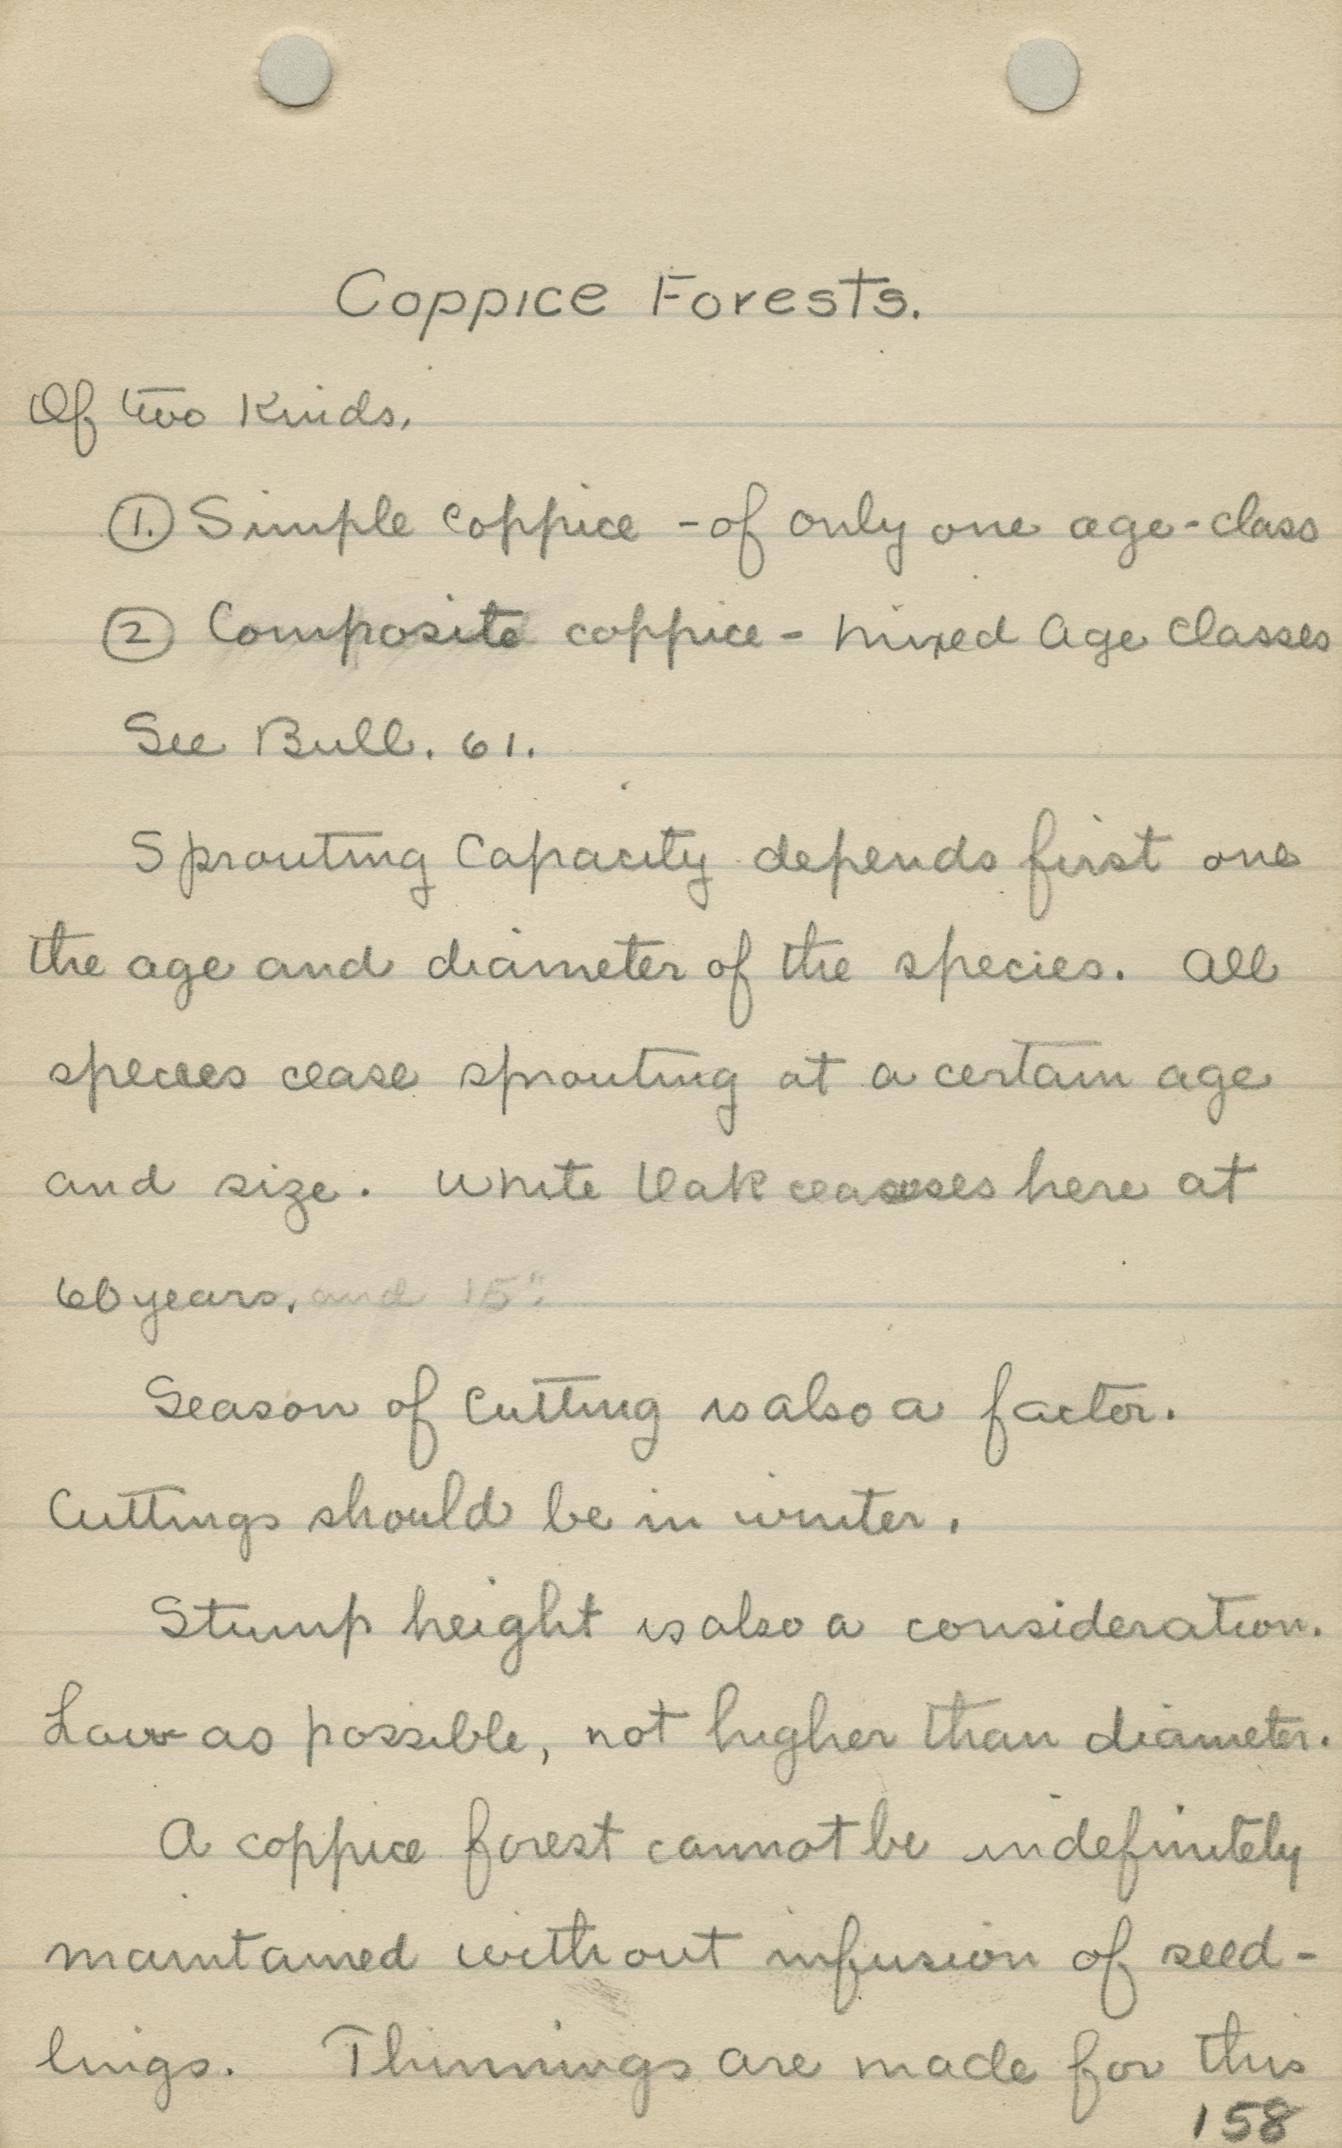 Coppice Forests.
Of two Kinds.
①. Simple Coppice - of only one age-class
② Composite coppice - mixed Age Classes
See Bull. 61.
Sprouting Capacity depends first on
the age and diameter of the species. All
species cease sprouting at a certain age
and size. White Oak ceases here at
60 years, and 15".
Season of Cutting is also a factor.
Cuttings should be in winter.
Stump height is also a consideration.
Low as possible, not higher than diameter.
A coppice forest cannot be indefinitely
maintained without infusion of seed-
lings. Thinnings are made for this
158